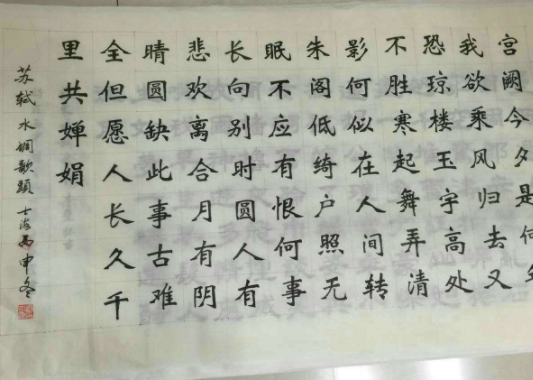 宫阙今夕是何年
我欲乘风归去又
恐琼楼玉宇高处
不胜寒起舞弄清
影何似在人间转
朱阁低绮户照无
眠不应有恨何事
长向别时圆人有
悲欢离合月有阴
晴圆缺此事古难
全但愿人长久千
里共婵娟
苏轼水调歌頭 丙申冬